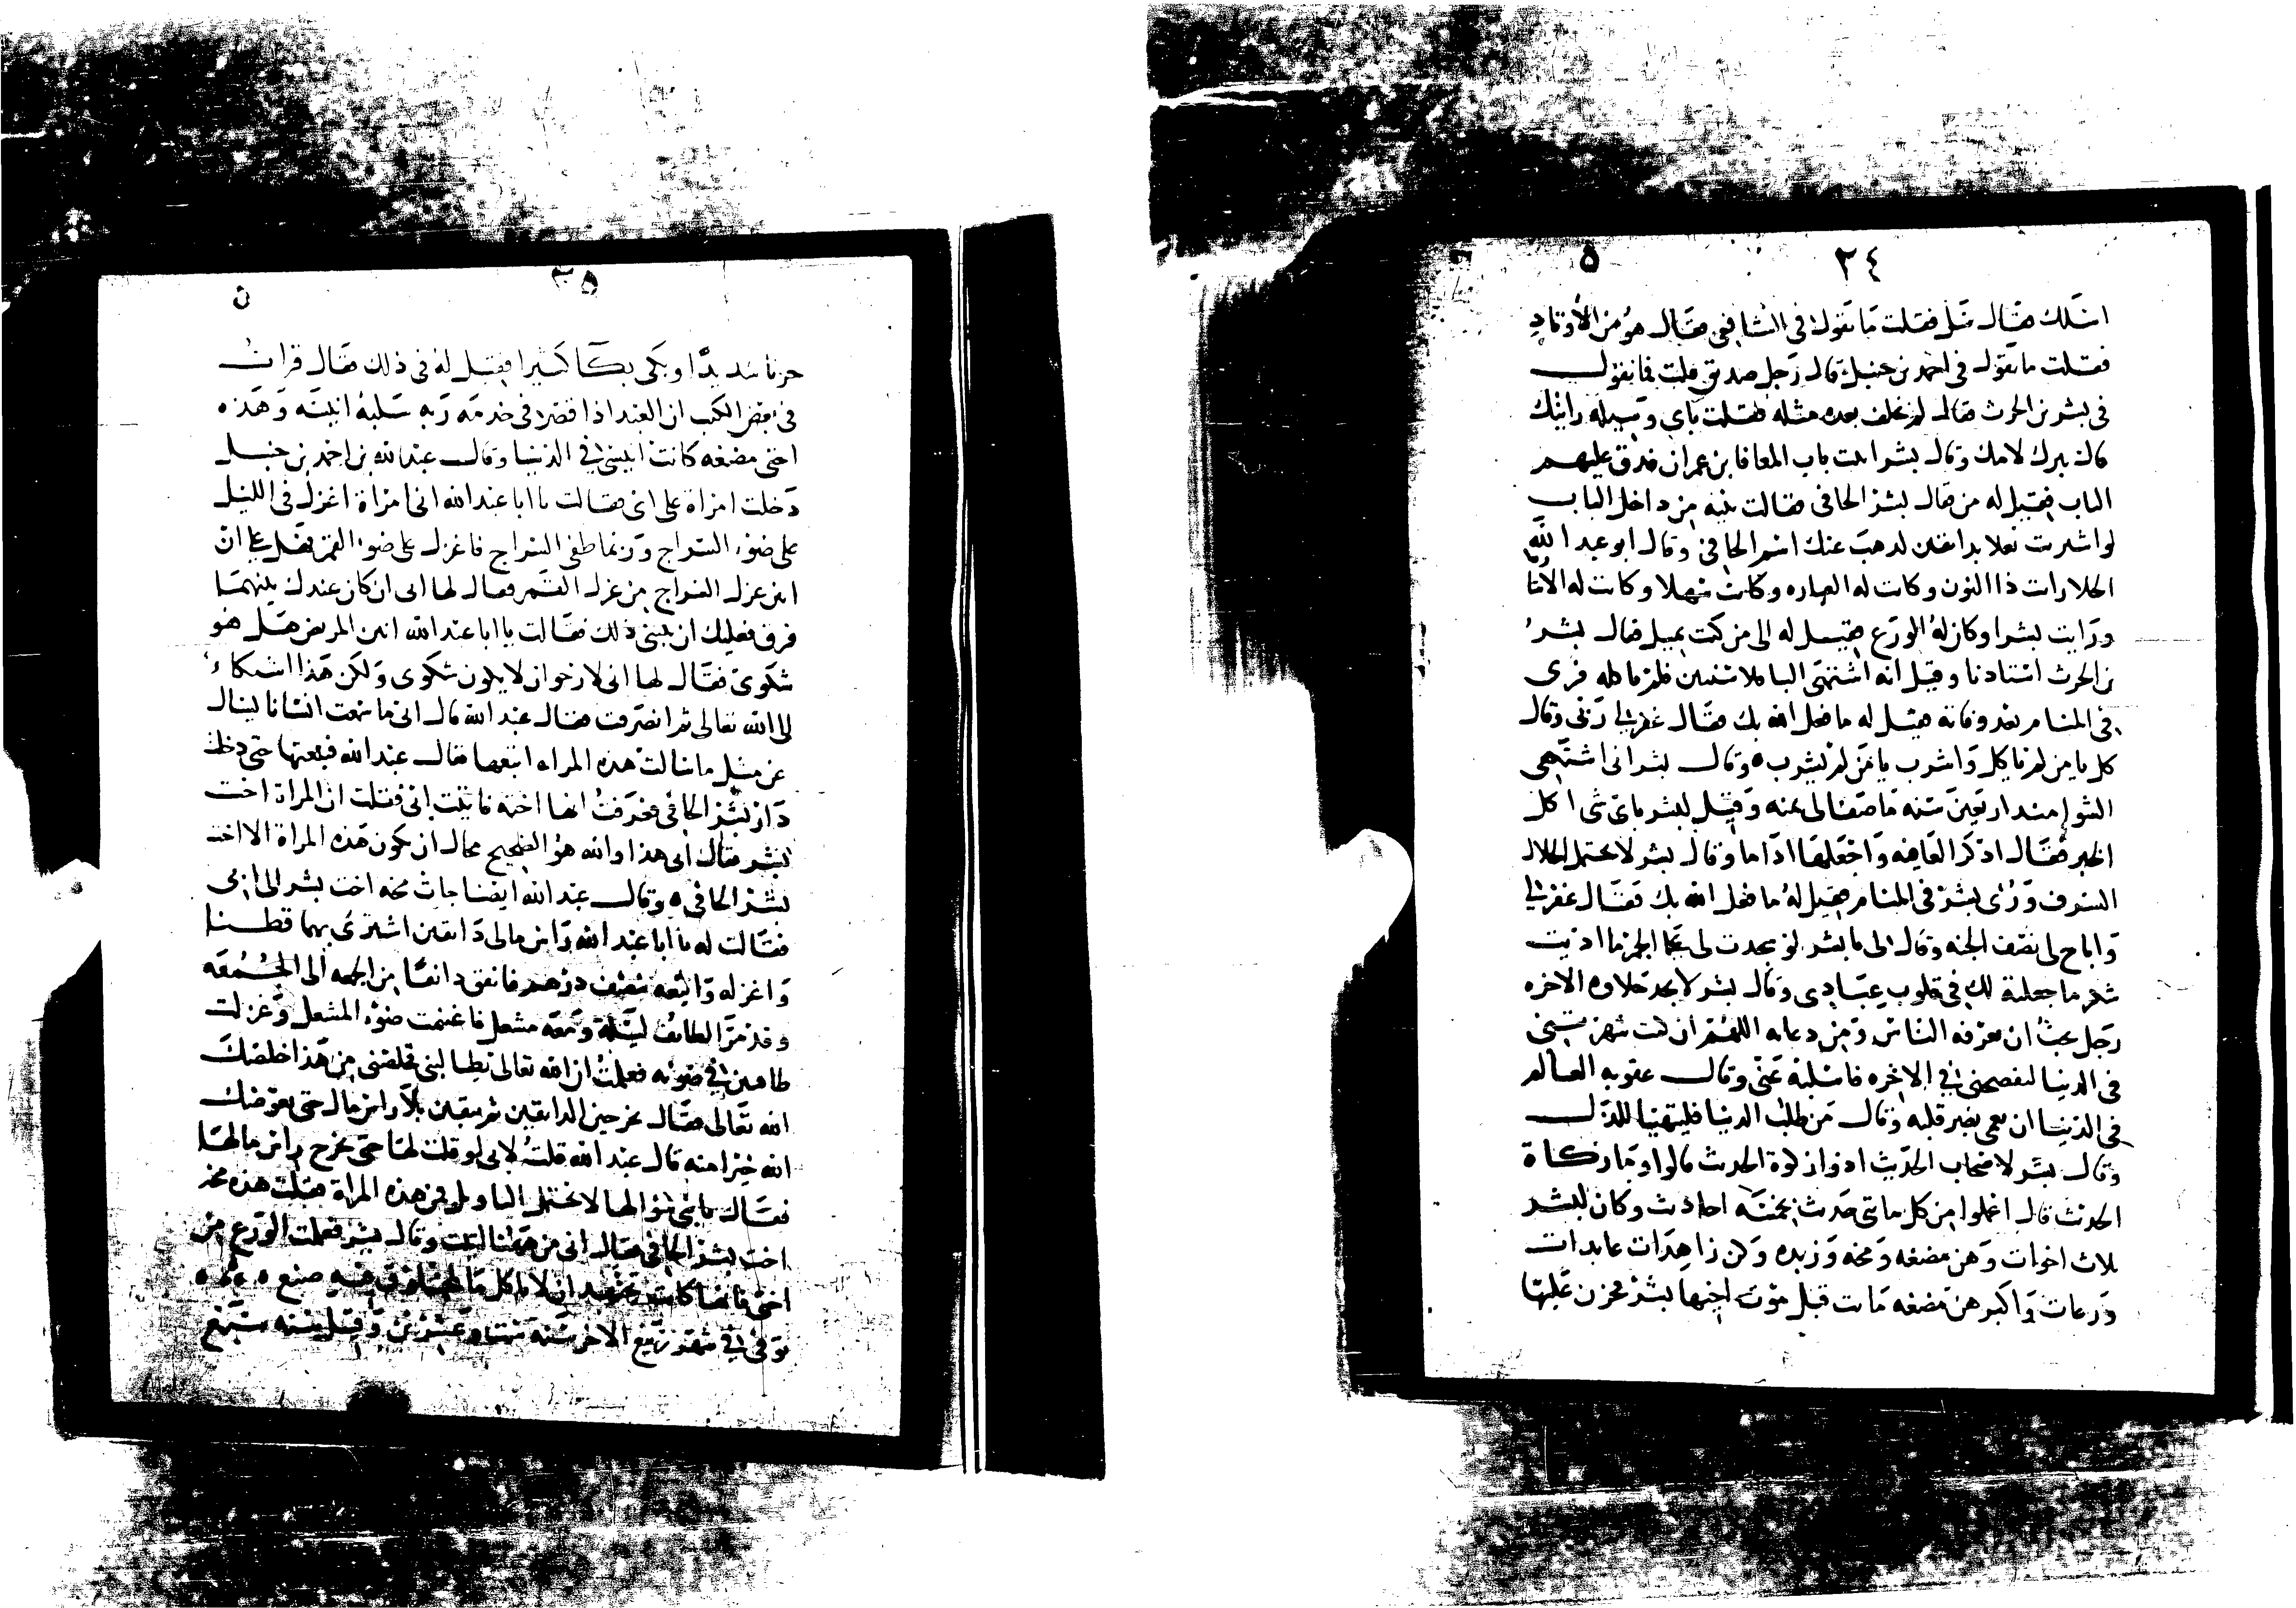 ٣٤
اسلك فقال سل فقلت ما تقول في الشافعي فقال هو من الأوتاد
فقلت ما تقول في احمد بن حنبل قال رجل صديق قلت فما تقول
في بشر بن الحرث فقال لم يخلف بعده مثله فقلت باي وسيله رايتك
قال ببرك لامك وقال بشر اتيت باب المعافا بن عمران فدق عليهم
الباب فقيل له من فقال بشر الحافي فقالت بنيه من داخل الباب
لو اشتريت نعلا بدانقين لذهب عنك اسم الحافي وقال ابو عبد الله
الجلا رايت ذا النون وكانت له العباره وكانت سهلا وكانت له الاشا
ورايت بشرا وكان له الورع فقيل له الى من كنت تميل فقال بشر
بن الحرث استادنا وقيل انه اشتهى الباقلا سنين فلم ياكله فرى
في المنام بعد وفاته فقيل له ما فعل الله بك فقال غفر لي ربي وقال
كل يا من لم ياكل واشرب يا من لم يشرب ٥ وقال بشر اني اشتهي
الشوا مند اربعين سنه ما صفا لي ثمنه وقيل لبشر باي شي اكل
الخبز فقال اذكر العافيه واجعلها اداما وقال بشر لا يحتمل الحلال
السرف ورؤى بشر في المنام فقيل له ما فعل الله بك فقال غفر لي
واباح لي نصف الجنه وقال لي يا بشر لو سجدت لي على الجمر ما اديت
شكر ما جعلته لك في قلوب عبادي وقال بشر لا يجد حلاوه الاخره
رجل يحب ان يعرفه الناس ومن دعايه اللهم ان كنت شهرتني
في الدنيا لتفضحني في الاخره فاسلبه عني وقال عقوبه العالم
في الدنيا ان يعمى بصر قلبه وقال من طلب الدنيا فليتهيا للذل
وقال بشر لاصحاب الحديث ادوا زكوة الحديث قالوا وما زكاة
الحديث قال اعملوا من كل مايتي حديث بخمسه احاديث وكان لبشر
ثلاث اخوات وهن مضغه ومخه وزبده وكن زاهدات عابدات
ورعات واكبرهن مضغه ماتت قبل موت اخيها بشر فحزن عليها
٣٥
حزنا شديدا وبكى بكا كثيرا فقيل له في ذلك فقال قرات
في بعض الكتب ان العبد اذا قصر في خدمه ربه سلبه انيسه وهذه
اختي مضغه كانت انيستي في الدنيا وقال عبد الله بن احمد بن حنبل
دخلت امراه على ابي فقالت يا ابا عبد الله اني امراة اغزل في الليل
على ضوء السراج وربما طفي السراج فاغزل على ضوء القمر فهل علي ان
ابين غزل السراج من غزل القمر فقال لها ابي ان كان عندك بينهما
فرق فعليك ان تبيني ذلك فقالت يا ابا عبد الله انين المريض هل هو
شكوى فقال لها اني لارجوا ان لا يكون شكوى ولكن هذا اشتكاء
الى الله تعالى ثم انصرفت فقال عبد الله قال ابي ما سمعت انسانا يسال
عن مثل ما سالت هذه المراه اتبعها فقال عبد الله فتبعتها حتى دخلت
دار بشر الحافي فعرفت انها اخته فاتيت ابي فقلت ان المراة اخت
بشر فقال ابي هذا والله هو الصحيح محال ان تكون هذه المراة الا اخت
بشر الحافي ٥ وقال عبد الله ايضا جات مخه اخت بشر الى ابي
فقالت له يا ابا عبد الله راس مالي دانقين اشتري بهما قطنا
واغزله وابيعه بنصف درهم فانفق دانقا من الجمعه الى الجمعه
وقد مر الطايف ليلة ومعه مشعل فاغتنمت ضوء المشعل وغزلت
طاقين في ضوئه فعلمت ان الله تعالى يطالبني فخلصني من هذا خلصك
الله تعالى فقال تخرجين الدانقين ثم تبقين بلا راس مال حتى يعوضك
الله خيرا منه قال عبد الله قلت لابي لو قلت لها حتى تخرج راس مالها
فقال يا بني سؤالها لا يحتمل التاويل فمن هذه المراة فقلت هذه مخه
اخت بشر الحافي فقال ابي من ههنا اتيت وقال بشر تعلمت الورع من
اختي فانها كانت تجتهد ان لا تاكل ما لمخلوق فيه صنع ٥
توفي في شهر ربيع الاخر سنة ست وعشرين وقيل سنه سبع